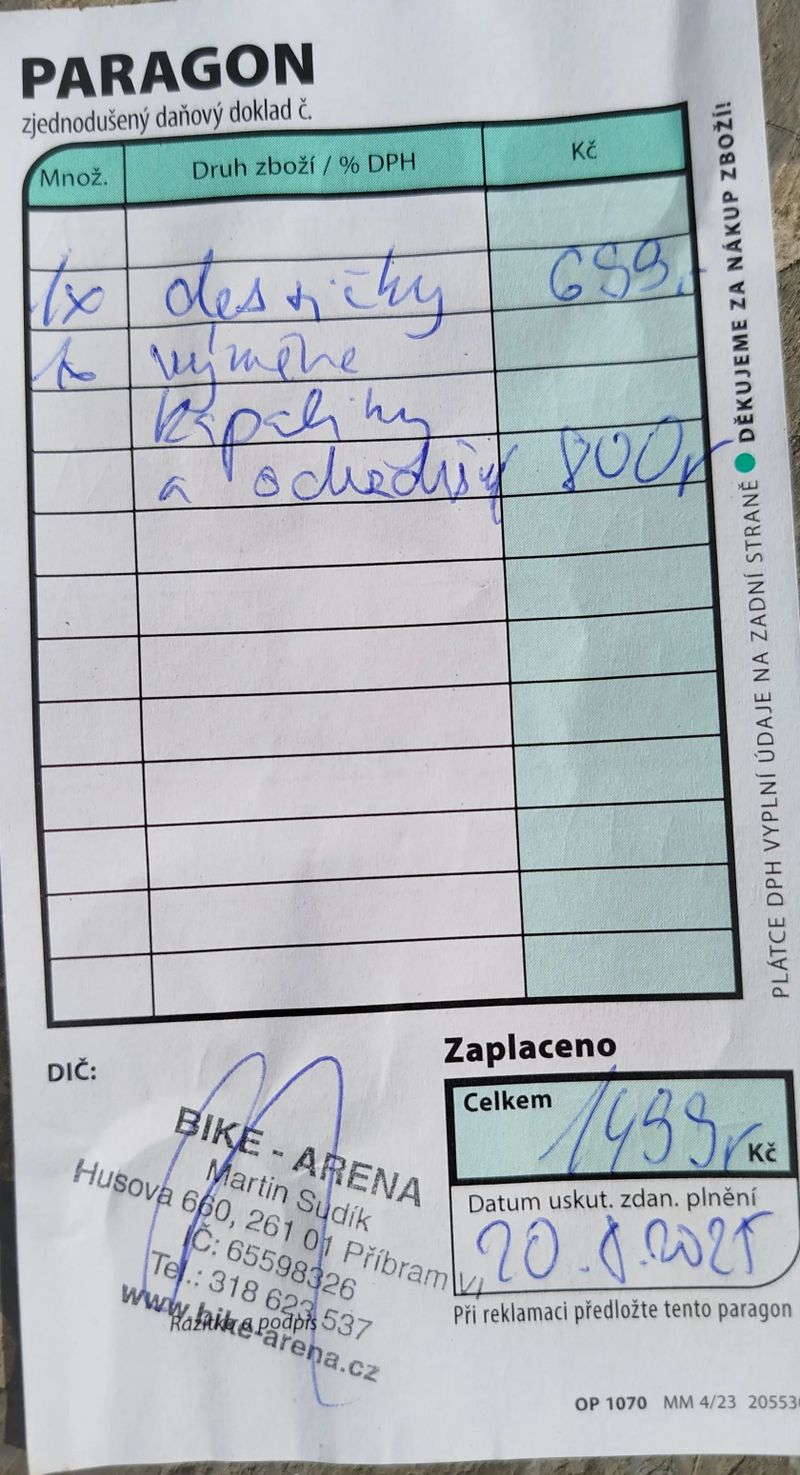 PARAGON
zjednodušený daňový doklad č.
Množ. Druh zboží / % DPH Kč
1x destičky 699,-
1x výměna
kapaliny
a 800,-
DIČ:
Zaplaceno
Celkem 1499,- Kč
Datum uskut. zdan. plnění
20.8.2025
Při reklamaci předložte tento paragon
BIKE - ARENA
Martin Sudík
Husova 660, 261 01 Příbram VI
IČ: 65598326
Tel.: 318 623 537
www.bike-arena.cz
Razítko a podpis
OP 1070 MM 4/23 20553
PLÁTCE DPH VYPLNÍ ÚDAJE NA ZADNÍ STRANĚ ● DĚKUJEME ZA NÁKUP ZBOŽÍ!